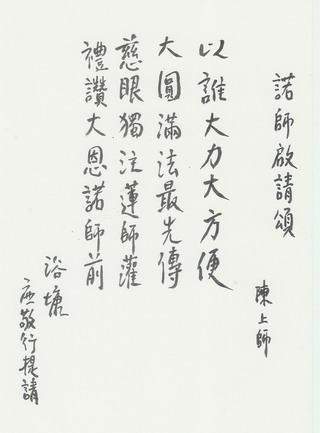 諾師啟請頌
陳上師
以誰大力大方便
大圓滿法最先傳
慈眼獨注蓮師灌
禮讚大恩諾師前
浴塘
應敬行提請